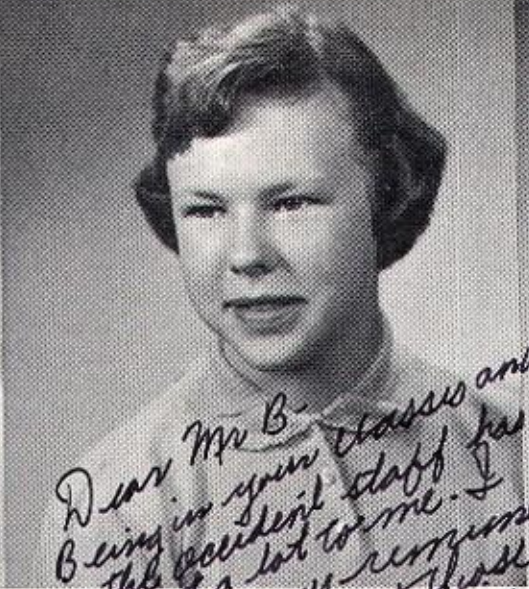 Dear Mr B-
Being in your classes and
the occident staff has
a lot to me. I
remem
those